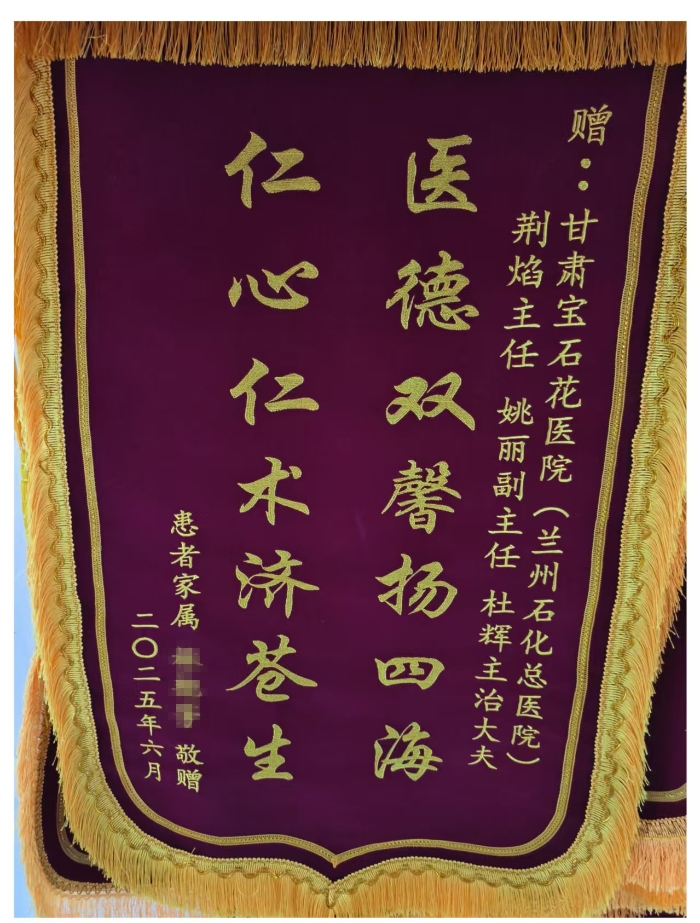 赠：
甘肃宝石花医院（兰州石化总医院）
荆焰主任 姚丽副主任 杜辉主治大夫
医德双馨扬四海
仁心仁术济苍生
患者家属 敬赠
二〇二五年六月